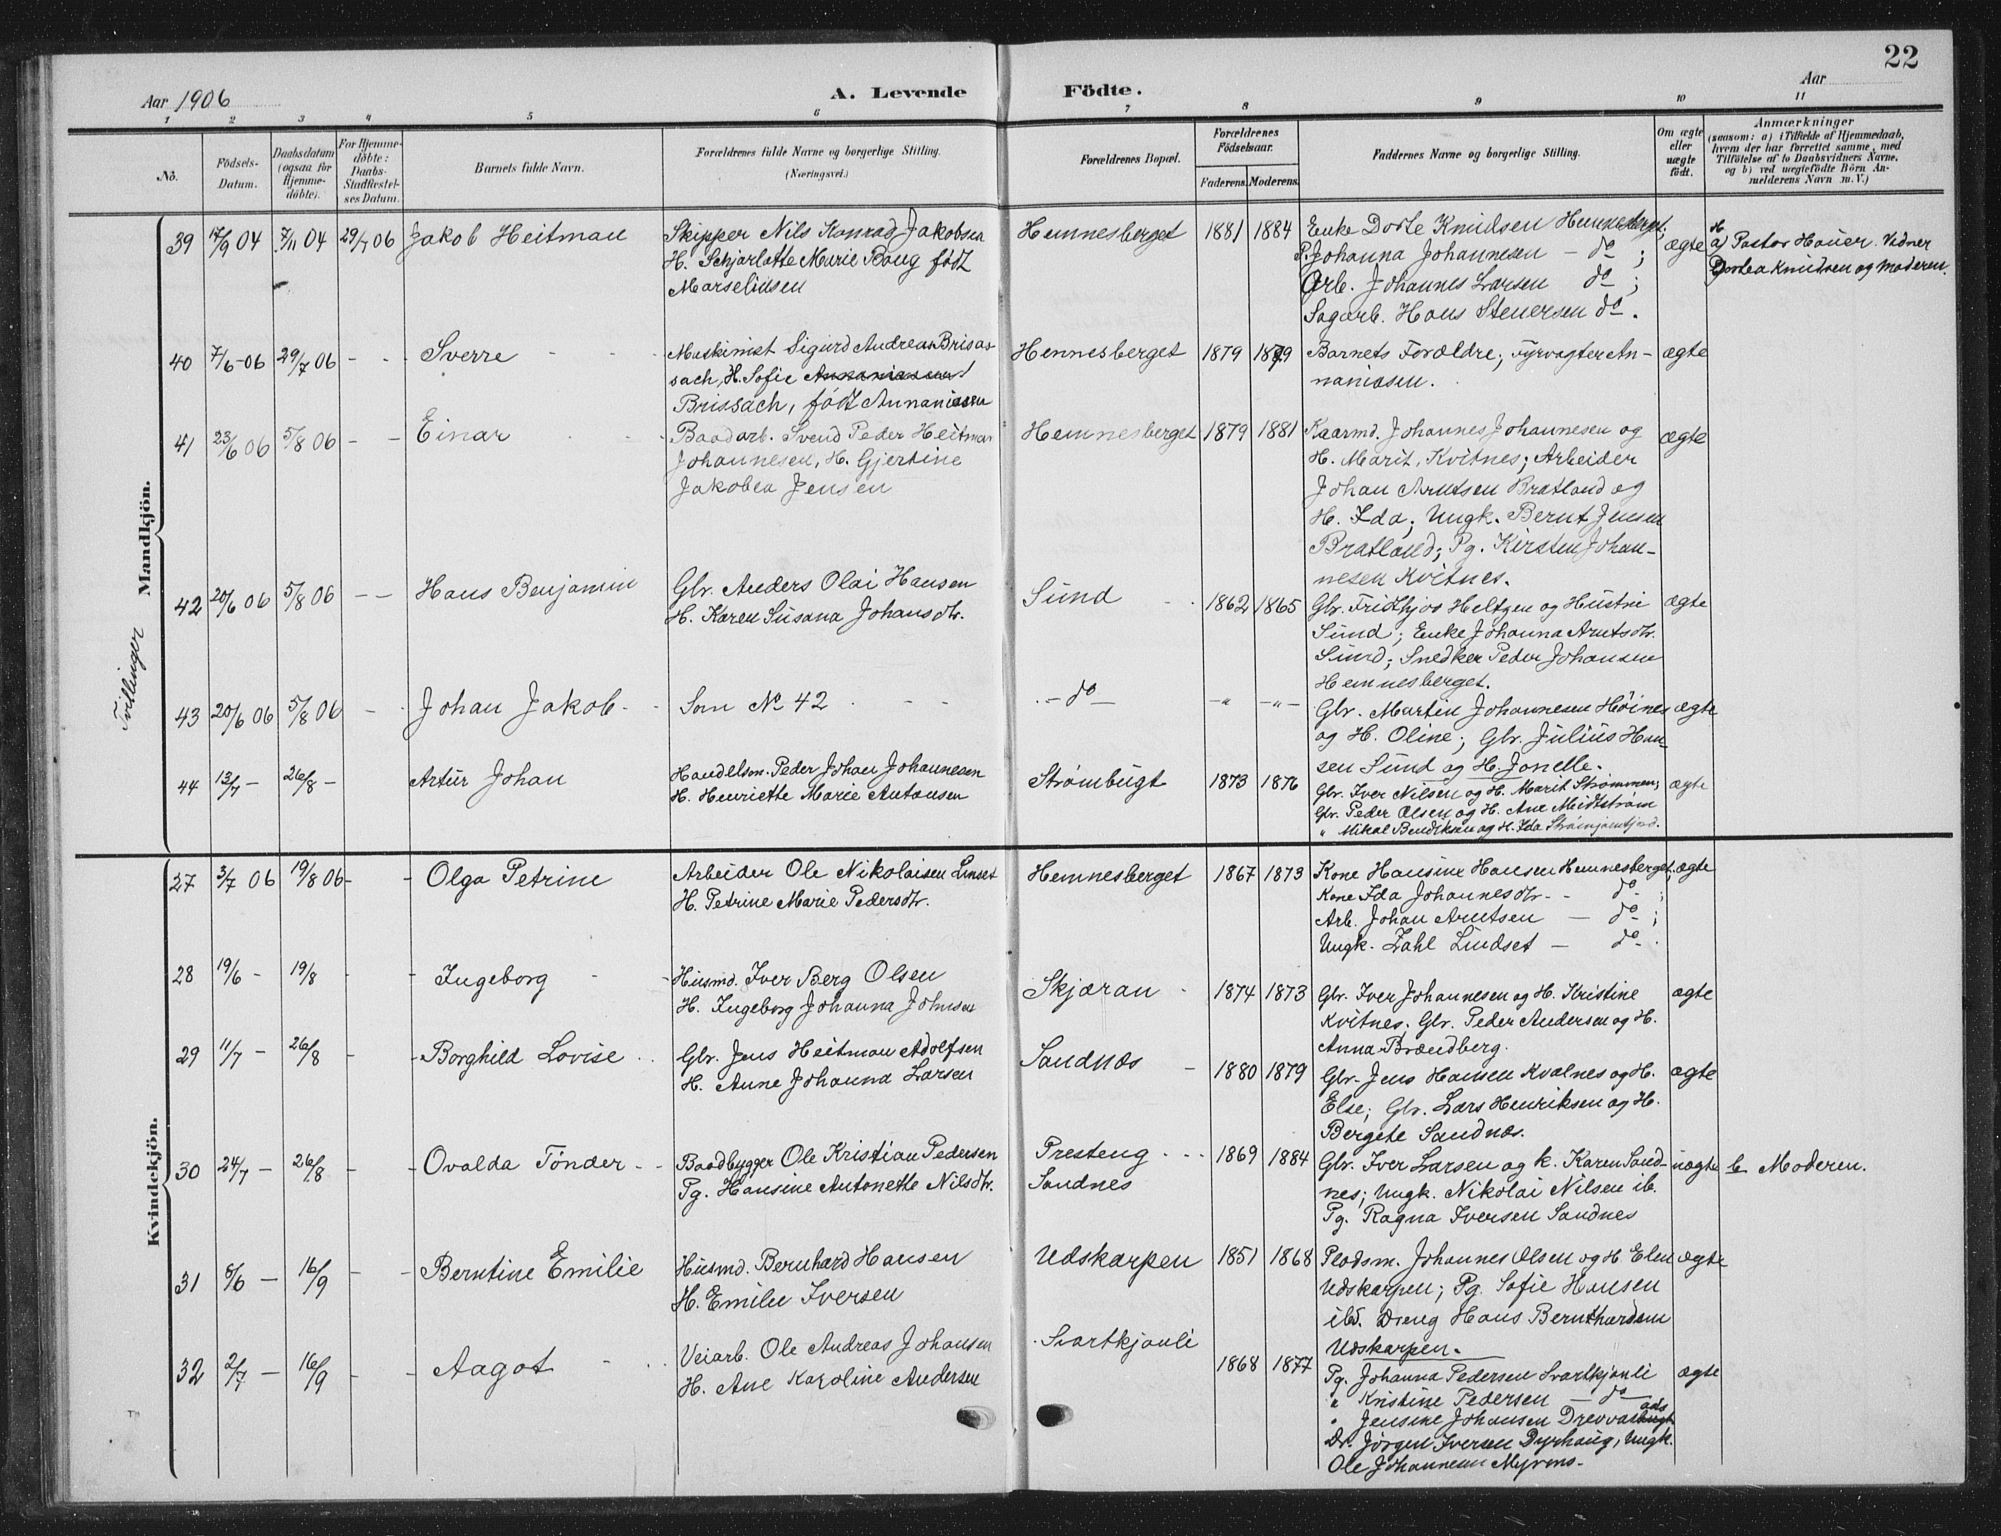 22
Aar 1906
A. Levende Födte.
Aar
1 2 3 4 5 6 7 8 9 10 11
No.
Födsels-Datum.
Daabsdatum (ogsaa for Hjemme-döbte).
For Hjemme-döbte: Daabs-Stadfæstel-ses Datum.
Barnets fulde Navn.
Forældrenes fulde Navne og borgerlige Stilling.
(Næringsvei.)
Forældrenes Bopæl.
Forældrenes Födselsaar.
Faderens. Moderens.
Faddernes Navne og borgerlige Stilling.
Om ægte eller uægte födt.
Anmærkninger
(saasom: a) i Tilfælde af Hjemmedaab, hvem der har forrettet samme, med Tilföielse af to Daabsvidners Navne, og b) ved uægtefödte Börn An-melderens Navn m. V.)
Mandkjön.
39 17/9 04 7/11 04 29/7 06 Jakob Heitman
Skipper Nils Konrad Jakobsen
H. Schjarlotte Marie Baug født
Marselinsen
Hemnesberget 1881 1884
Enke Dorte Knudsen Hemnesberget;
P. Johanna Johannesen — do ;
Arb. Johannes Larsen do ;
Sagarb. Hans Stenersen do.
ægte
a) Pastor Hauer. Vidner
Dorbea Knudsen og Moderen.
40 7/6-06 29/7 06 - - Sverre
Maskinist Sigurd Andreas Brisas-
sach, H. Sofie
Brissach, født Annaniasen
Hennesberget 1879 1879
Barnets Forældre; Fyrvogter An-
naniasen.
ægte
41 23/6 06 5/8 06 - - Einar
Baadarb. Svend Peder Heitman
Johannesen, H. Gjertine
Jakobea Jensen
Hemnesberget 1879 1881
Kaarmd. Johannes Johannesen og
H. Marit, Kvitnes; Arbeider
Johan Arntsen Bratland og
H. Ida; Ungk. Bernt Jensen
Bratland; Pg. Kirsten Johan-
nesen Kvitnes.
ægte
Tvillinger
42 20/6 06 5/8 06 - - Hans Benjamin
Gbr. Anders Olai Hansen
H. Karen Susana Johansdtr.
Sund 1862 1865
Gbr. Fridthjov Heltzen og Hustru
Sund; Enke Johanna Arntsdtr.
Sund; Snedker Peder Johansen
Hemnesberget.
ægte
43 20/6 06 5/8 06 - - Johan Jakob
Som No 42
- do - -"- -"-
Gbr. Martin Johannesen Höines
og H. Oline; Gbr. Julius Han-
sen Sund og H. Jonelle.
ægte
44 13/7 - 26/8 - Artur Johan
Handelsm. Peder Johan Johannesen
H. Henriette Marie Antonsen
Strømbugt 1873 1876
Gbr. Iver Nilsen og H. Marit Strømmen;
Gbr. Peder Olsen og H. Ane Midtstrøm
" Mikal Bendiksen og H. Ida
ægte
Kvindekjön.
27 3/7 06 19/8 06 - - Olga Petrine
Arbeider Ole Nikolaisen Linset
H. Petrine Marie Pedersdtr.
Hemnesberget 1867 1873
Kone Hansine Hansen Hemnesberget;
Kone Ida Johannesdtr. - do ;
Arb. Johan Arntsen — do ;
Ungk. Zahl Lindset — do.
ægte
28 19/6 - 19/8 - - Ingeborg
Husmd. Iver Berg Olsen
H. Ingeborg Johanna Johnsen
Skjæran 1874 1873
Gbr. Iver Johannesen og H. Kristine
Kvitnes; Gbr. Peder Andersen og H.
Anna Brændberg.
ægte
29 11/7 - 26/8 - - Borghild Lovise
Gbr. Jens Heitman Adolfsen
H. Anne Johanna Larsen
Sandnes 1880 1879
Gbr. Jens Hansen Kvalnes og H.
Else; Gbr. Lars Henriksen og H.
Bergete Sandnes.
ægte
30 24/7 - 26/8 - - Ovalda Tönder
Baadbygger Ole Kristian Pedersen
Pg. Hansine Antonette Nilsdtr.
Presteng
Sandnes
1869 1884
Gbr. Iver Larsen og k. Karen Sand-
nes; Ungk. Nikolai Nilsen ib.
Pg. Ragna Iversen Sandnes
uægte
b Moderen.
31 8/6 - 16/9 - - Berntine Emilie
Husmd. Bernhard Hansen
H. Emilie Iversen
Udskarpen 1851 1868
Pladsm. Johannes Olsen og H Elen
Udskarpen; Pg. Sofie Hansen
ibd. Dreng Hans Bernthardsen
Udskarpen.
ægte
32 2/7 16/9 - - Aagot
Veiarb. Ole Andreas Johansen
H. Ane Karoline Andersen
Svartkjønli 1868 1877
Pg. Johanna Pedersen Svartkjønli
" Kristine Pedersen — do
" Jensine Johansen
Dr. Jørgen Iversen Dyrhaug, Ungk.
Ole Johannesen Myrmo.
ægte